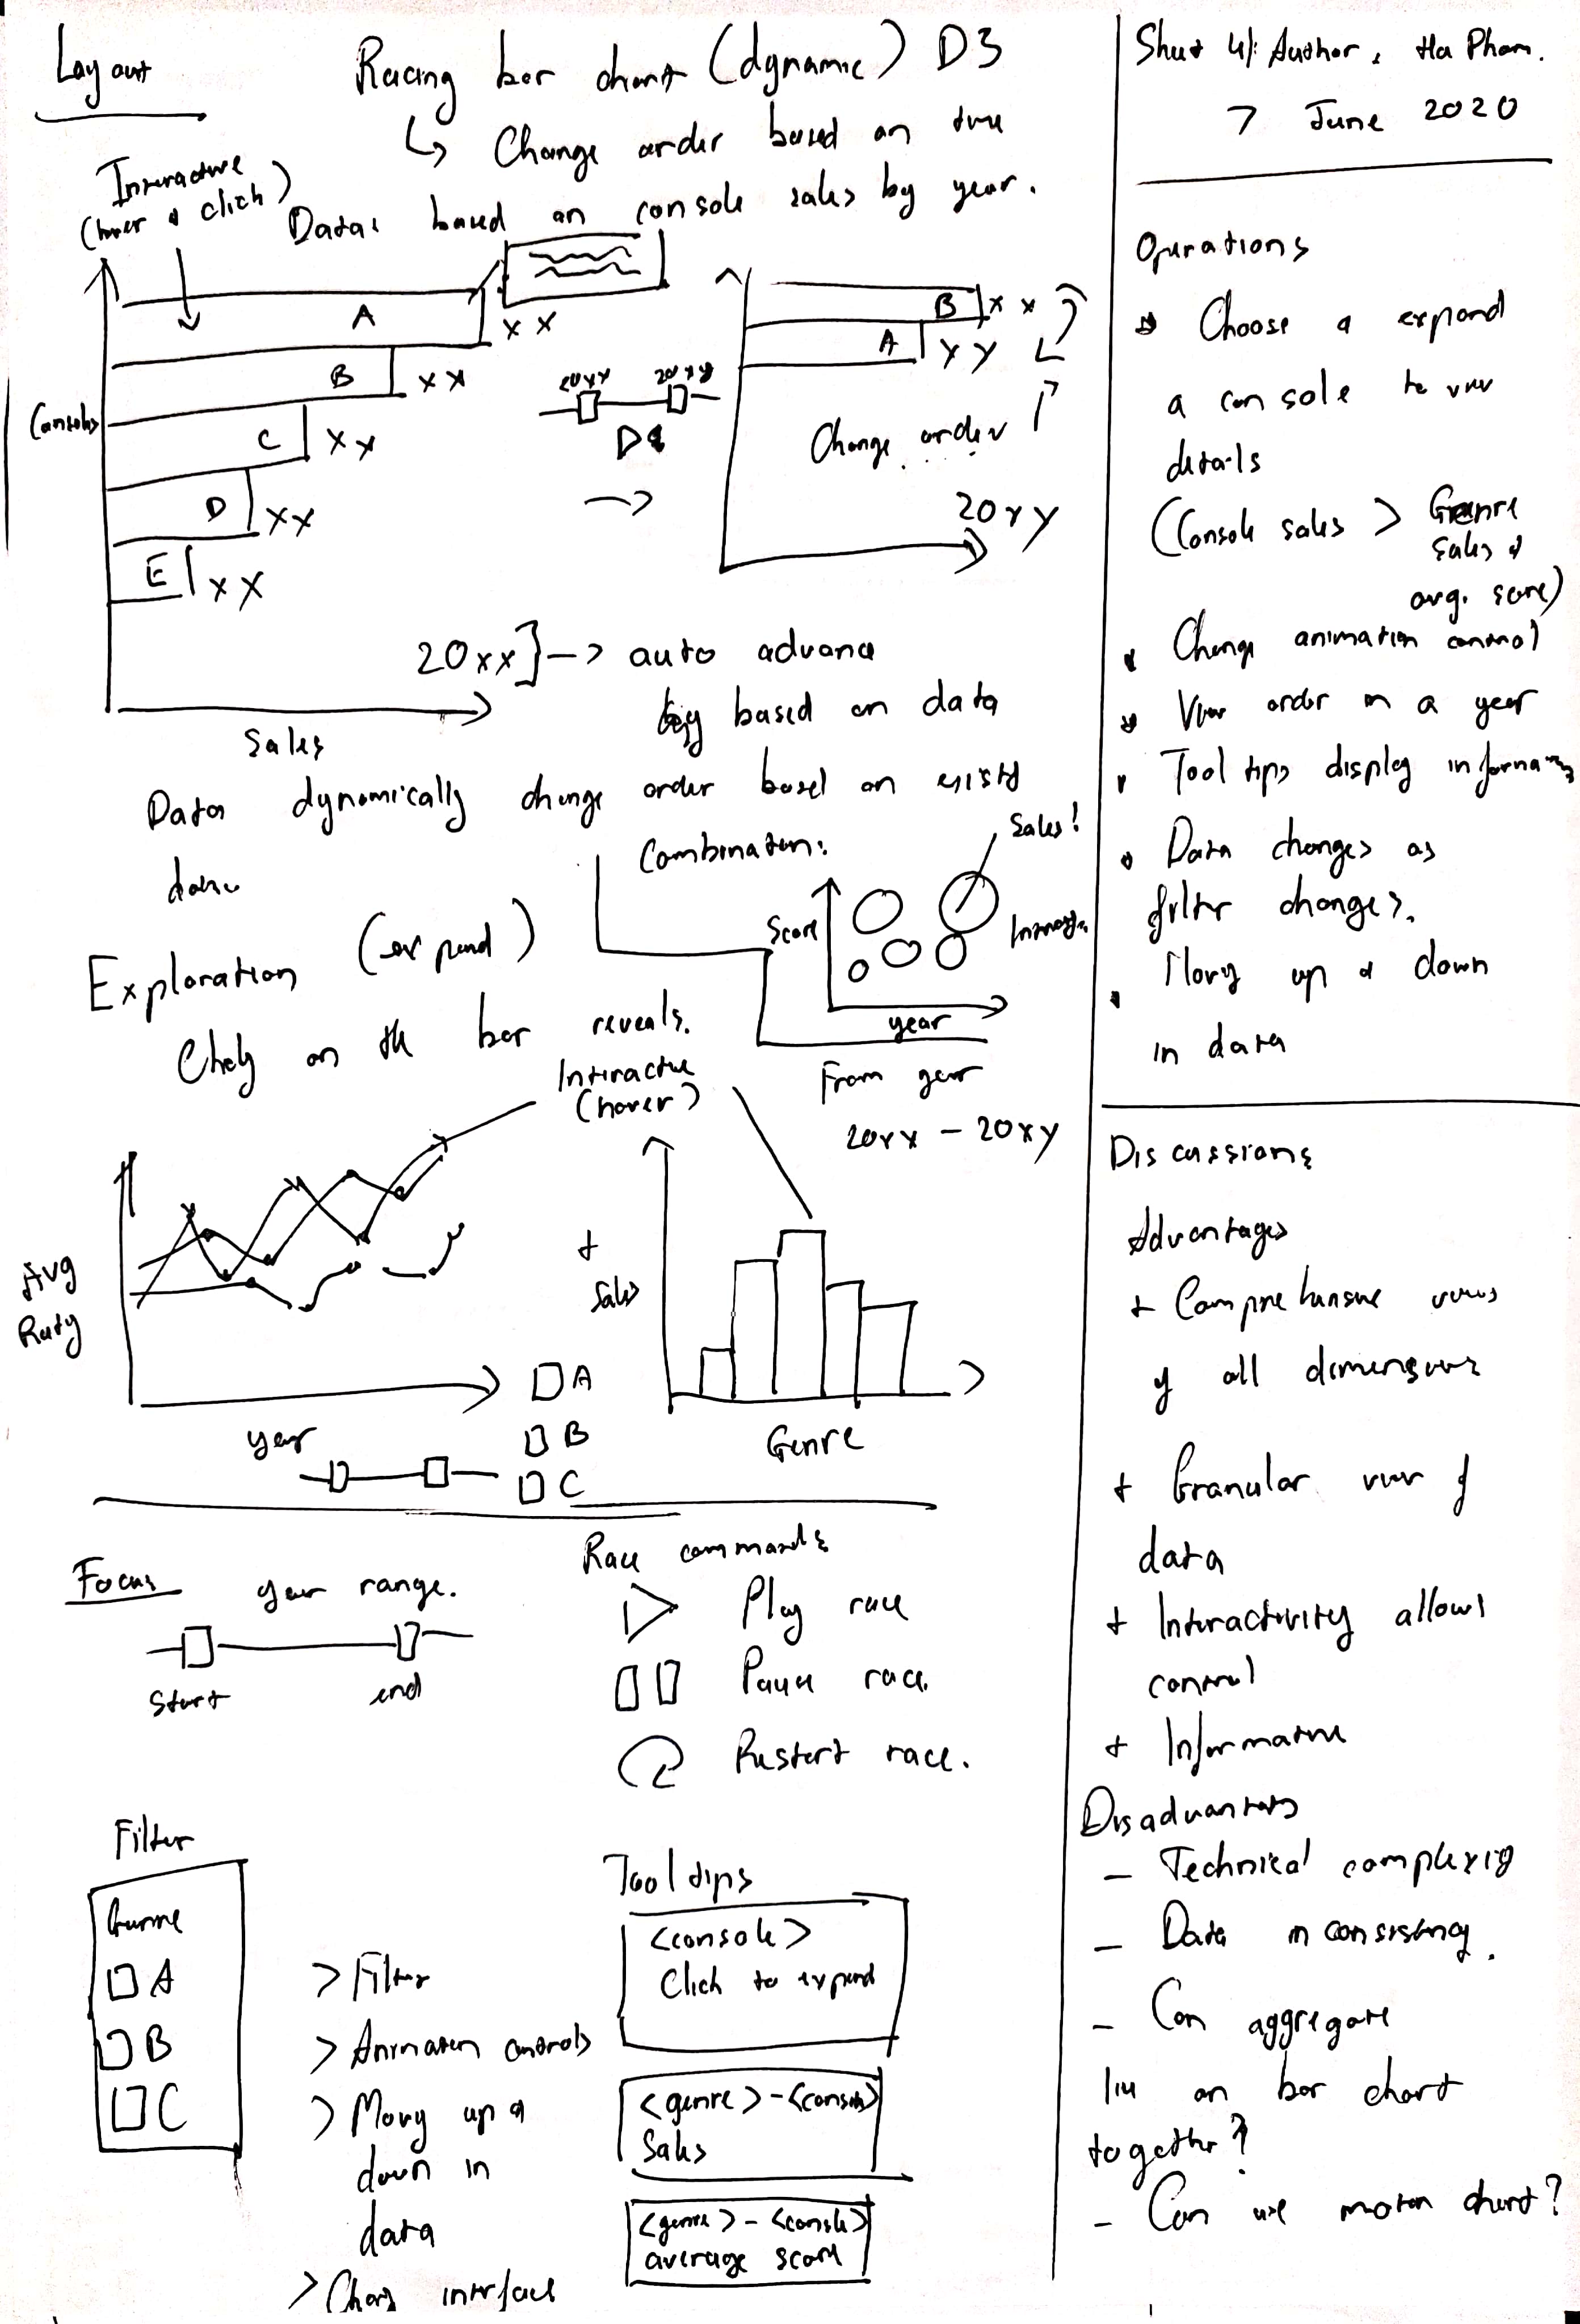 Layout
Racing bar chart (dynamic) D3
↳ Change order based on time
Interactive
(hover & click)
Data: based on console sales by year.
A
X X
B
X X
C
X X
D
X X
E
X X
Consoles
Sales
20xx
20xx 20xy
→
B
X X
A
X Y
Change order
20xy
20xx ] --> auto advance
based on data
Data dynamically change order based on
data
Combination:
Sales!
Score
year
From year
20xx - 20xy
Exploration (expand)
on the bar reveals.
Interactive
(hover)
Avg
year
□ A
□ B
□ C
+
Sales
Genre
Focus year range.
Start end
Race commands
Play race
Pause race.
Restart race.
Filter
Genre
□ A
□ B
□ C
> Filter
> Animation controls
> Moving up &
down in
data
> interface
Tool tips
<console>
Click to expand
<genre> - <console>
Sales
<genre> - <console>
average score
Sheet 4/: Author: Ha Pham.
7 June 2020
Operations
Choose & expand
a console to view
details
(Console sales > Genre
sales &
avg. score)
Change animation control
View order in a year
Tool tips display
Data changes as
filter changes.
Moving up & down
in data
Discussions
Advantages
+ Comprehensive views
of all dimensions
+ Granular view of
data
+ Interactivity allows
control
+ Informative
Disadvantages
- Technical complexity
- Data inconsistency.
- Can aggregate
line on bar chart
together?
- Can use motion chart?